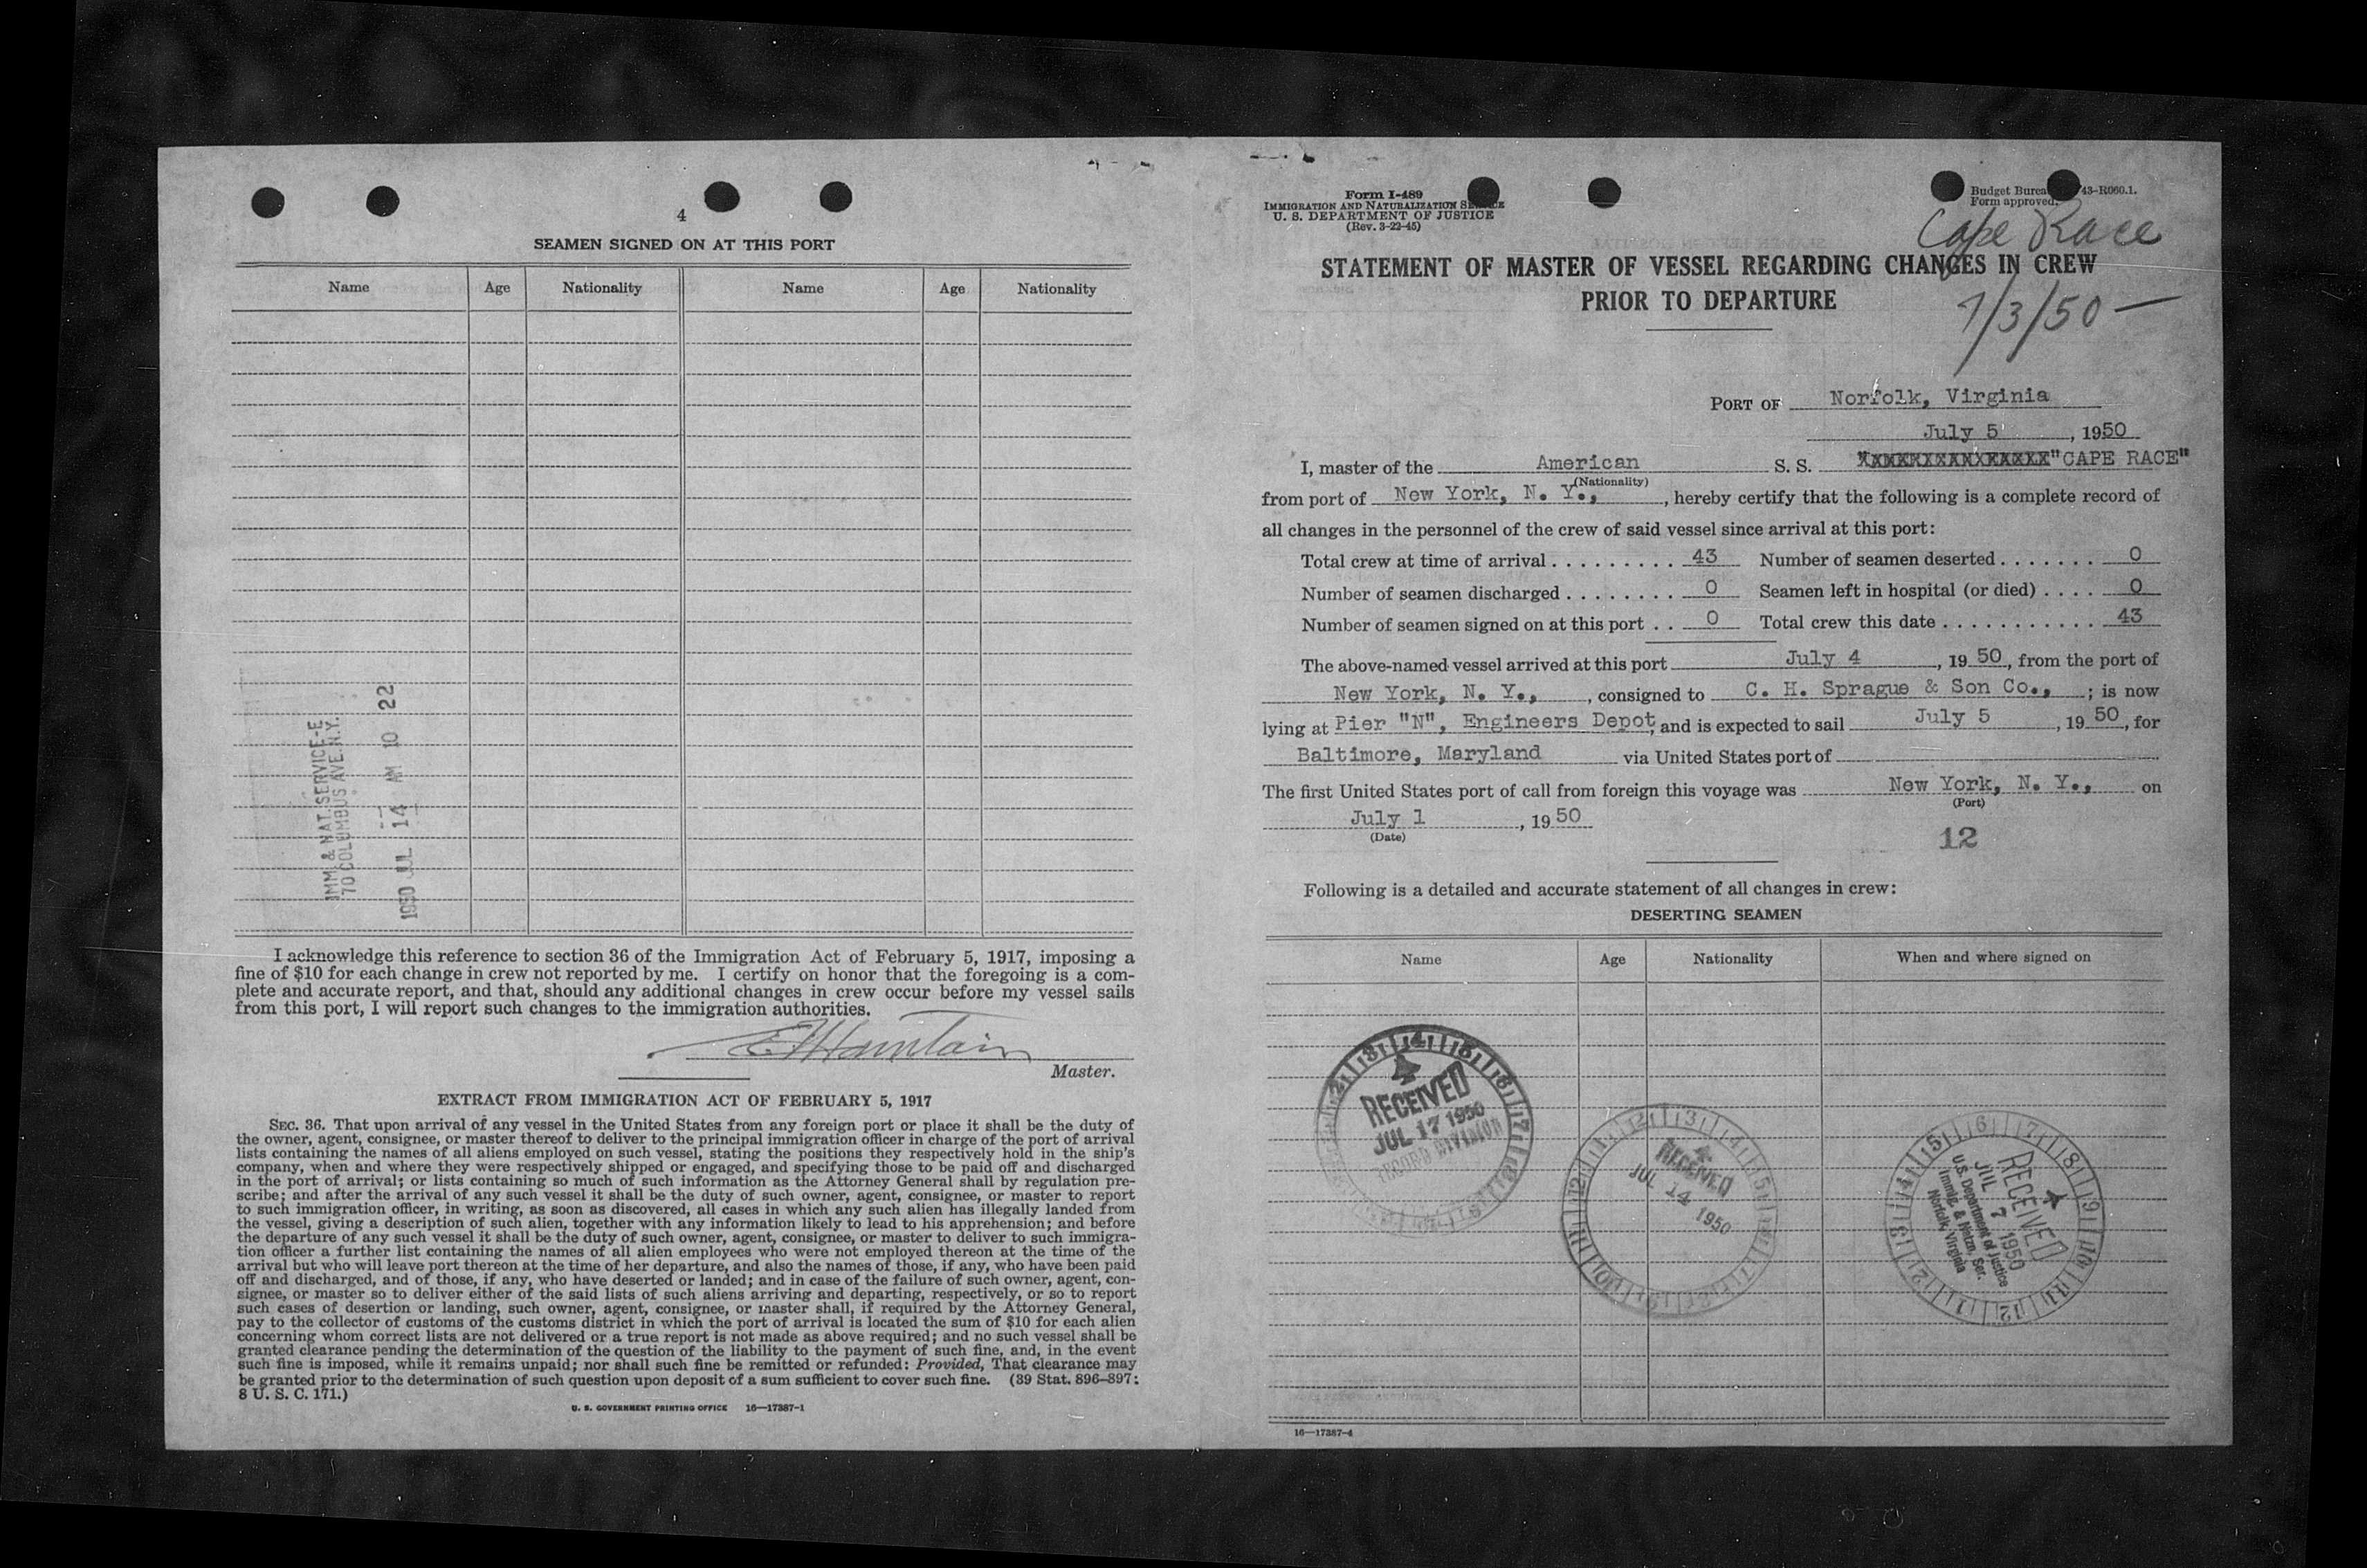 4
SEAMEN SIGNED ON AT THIS PORT
Name Age Nationality Name Age Nationality
IMM. & NAT. SERVICE-E
70 COLUMBUS AVE. N.Y.
1950 JUL 14 AM 10 22
I acknowledge this reference to section 36 of the Immigration Act of February 5, 1917, imposing a
fine of $10 for each change in crew not reported by me. I certify on honor that the foregoing is a com-
plete and accurate report, and that, should any additional changes in crew occur before my vessel sails
from this port, I will report such changes to the immigration authorities.
Master.
EXTRACT FROM IMMIGRATION ACT OF FEBRUARY 5, 1917
SEC. 36. That upon arrival of any vessel in the United States from any foreign port or place it shall be the duty of
the owner, agent, consignee, or master thereof to deliver to the principal immigration officer in charge of the port of arrival
lists containing the names of all aliens employed on such vessel, stating the positions they respectively hold in the ship's
company, when and where they were respectively shipped or engaged, and specifying those to be paid off and discharged
in the port of arrival; or lists containing so much of such information as the Attorney General shall by regulation pre-
scribe; and after the arrival of any such vessel it shall be the duty of such owner, agent, consignee, or master to report
to such immigration officer, in writing, as soon as discovered, all cases in which any such alien has illegally landed from
the vessel, giving a description of such alien, together with any information likely to lead to his apprehension; and before
the departure of any such vessel it shall be the duty of such owner, agent, consignee, or master to deliver to such immigra-
tion officer a further list containing the names of all alien employees who were not employed thereon at the time of the
arrival but who will leave port thereon at the time of her departure, and also the names of those, if any, who have been paid
off and discharged, and of those, if any, who have deserted or landed; and in case of the failure of such owner, agent, con-
signee, or master so to deliver either of the said lists of such aliens arriving and departing, respectively, or so to report
such cases of desertion or landing, such owner, agent, consignee, or master shall, if required by the Attorney General,
pay to the collector of customs of the customs district in which the port of arrival is located the sum of $10 for each alien
concerning whom correct lists are not delivered or a true report is not made as above required; and no such vessel shall be
granted clearance pending the determination of the question of the liability to the payment of such fine, and, in the event
such fine is imposed, while it remains unpaid; nor shall such fine be remitted or refunded: Provided, That clearance may
be granted prior to the determination of such question upon deposit of a sum sufficient to cover such fine. (39 Stat. 896-897;
8 U. S. C. 171.)
U. S. GOVERNMENT PRINTING OFFICE 16—17387-1
Form I-489
IMMIGRATION AND NATURALIZATION
U. S. DEPARTMENT OF JUSTICE
(Rev. 3-22-45)
Budget 43-R060.1.
Form approved.
Cape Race
STATEMENT OF MASTER OF VESSEL REGARDING CHANGES IN CREW
PRIOR TO DEPARTURE
7/3/50 —
PORT OF Norfolk, Virginia
July 5, 1950
I, master of the American S. S. "CAPE RACE"
(Nationality)
from port of New York, N. Y., , hereby certify that the following is a complete record of
all changes in the personnel of the crew of said vessel since arrival at this port:
Total crew at time of arrival . . . . . . . . . 43 Number of seamen deserted . . . . . . . 0
Number of seamen discharged . . . . . . . . 0 Seamen left in hospital (or died) . . . . 0
Number of seamen signed on at this port . . 0 Total crew this date . . . . . . . . . . . 43
The above-named vessel arrived at this port July 4, 1950, from the port of
New York, N. Y., , consigned to C. H. Sprague & Son Co., ; is now
lying at Pier "N", Engineers Depot, and is expected to sail July 5, 1950, for
Baltimore, Maryland via United States port of
The first United States port of call from foreign this voyage was New York, N. Y., on
(Port)
July 1, 1950
(Date)
12
Following is a detailed and accurate statement of all changes in crew:
DESERTING SEAMEN
Name Age Nationality When and where signed on
RECEIVED
JUL 17 1950
RECORD DIVISION
RECEIVED
JUL 14 1950
RECEIVED
JUL 7 1950
U.S. Department of Justice
Immig. & Natzn. Ser.
Norfolk, Virginia
16—17387-4